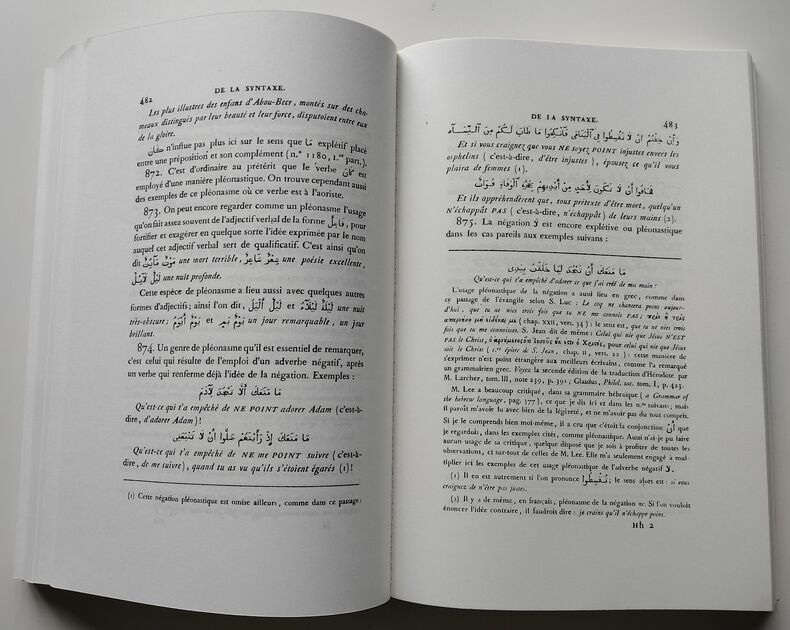 482
DE LA SYNTAXE.
Les plus illustres des enfans d'Abou-Becr, montés sur des cha-
meaux distingués par leur beauté et leur force, disputoient entre eux
de la gloire.
كان n'influe pas plus ici sur le sens que ما explétif placé
entre une préposition et son complément (n.° 1180, 1.re part.).
872. C'est d'ordinaire au prétérit que le verbe كان est
employé d'une manière pléonastique. On trouve cependant aussi
des exemples de ce pléonasme où ce verbe est à l'aoriste.
873. On peut encore regarder comme un pléonasme l'usage
qu'on fait assez souvent de l'adjectif verbal de la forme فَاعِلٌ, pour
fortifier et exagérer en quelque sorte l'idée exprimée par le nom
auquel cet adjectif verbal sert de qualificatif. C'est ainsi qu'on
dit مَوْتٌ مَآئِتٌ une mort terrible, شِعْرٌ شَاعِرٌ une poésie excellente,
لَيْلٌ لَآئِلٌ une nuit profonde.
Cette espèce de pléonasme a lieu aussi avec quelques autres
formes d'adjectifs; ainsi l'on dit, لَيْلٌ أَلْيَلُ et لَيْلَةٌ لَيْلَآءُ une nuit
très-obscure; يَوْمٌ أَيْوَمُ et يَوْمٌ un jour remarquable, un jour
brillant.
874. Un genre de pléonasme qu'il est essentiel de remarquer,
c'est celui qui résulte de l'emploi d'un adverbe négatif, après
un verbe qui renferme déjà l'idée de la négation. Exemples :
مَا مَنَعَكَ أَلَّا تَسْجُدَ لِآدَمَ
Qu'est-ce qui t'a empêché de NE POINT adorer Adam (c'est-à-
dire, d'adorer Adam)!
مَا مَنَعَكَ إِذْ رَأَيْتَهُمْ ضَلُّوا أَنْ لَا تَتَّبِعَنِي
Qu'est-ce qui t'a empêché de NE ME POINT suivre (c'est-à-
dire, de me suivre), quand tu as vu qu'ils s'étoient égarés (1)!
(1) Cette négation pléonastique est omise ailleurs, comme dans ce passage :
DE LA SYNTAXE.
483
وَإِنْ خِفْتُمْ أَنْ لَا تُقْسِطُوا فِي الْيَتَامَى فَانْكِحُوا مَا طَابَ لَكُمْ مِنَ النِّسَآءِ
Et si vous craignez que vous NE soyez POINT injustes envers les
orphelins (c'est-à-dire, d'être injustes), épousez ce qu'il vous
plaira de femmes (1).
فَخَافُوا أَنْ لَا يَكُونَ مِنْ أَيْدِيهِمْ بِحُجَّةِ الْوَفَاةِ فَوَاتٌ
Et ils appréhendèrent que, sous prétexte d'être mort, quelqu'un
N'échappât PAS (c'est-à-dire, n'échappât) de leurs mains (2).
875. La négation لا est encore explétive ou pléonastique
dans les cas pareils aux exemples suivans :
مَا مَنَعَكَ أَنْ تَسْجُدَ لِمَا خَلَقْتُ بِيَدِي
Qu'est-ce qui t'a empêché d'adorer ce que j'ai créé de ma main!
L'usage pléonastique de la négation a aussi lieu en grec, comme dans
ce passage de l'évangile selon S. Luc : Le coq ne chantera point aujour-
d'hui, que tu ne nies trois fois que tu NE me connois PAS; πρὶν ἢ τρὶς
ἀπαρνήσῃ μὴ εἰδέναι με (chap. XXII, vers. 34) : le sens est, que tu ne nies trois
fois que tu me connoisses. S. Jean dit de même : Celui qui nie que Jésus N'EST
PAS le Christ, ὁ ἀρνούμενος ὅτι Ἰησοῦς οὐκ ἔστιν ὁ Χριστός, pour celui qui nie que Jésus
soit le Christ (1.re épître de S. Jean, chap. II, vers. 22) : cette manière de
s'exprimer n'est point étrangère aux meilleurs écrivains, comme l'a remarqué
un grammairien grec. Voyez la seconde édition de la traduction d'Hérodote de
M. Larcher, tom. III, note 239, p. 391; Glassius, Philol. sac. tom. I, p. 423.
M. Lee a beaucoup critiqué, dans sa grammaire hébraïque (a Grammar of
the hebrew language, pag. 177), ce que je dis ici et dans les n.os suivans; mais
il paroît m'avoir lu avec bien de la légèreté, et ne m'avoir pas du tout compris.
Si je le comprends bien moi-même, il a cru que c'étoit la conjonction أَنْ que
je regardois, dans les exemples cités, comme pléonastique. Aussi n'ai-je pu faire
aucun usage de sa critique, quelque disposé que je sois à profiter de toutes les
observations, et sur-tout de celles de M. Lee. Elle m'a seulement engagé à mul-
tiplier ici les exemples de cet usage pléonastique de l'adverbe négatif لا.
(1) Il en est autrement si l'on prononce تَقْسِطُوا; le sens alors est : si vous
craignez de n'être pas justes.
(2) Il y a de même, en français, pléonasme de la négation ne. Si l'on vouloit
énoncer l'idée contraire, il faudroit dire : je crains qu'il n'échappe point.
Hh 2